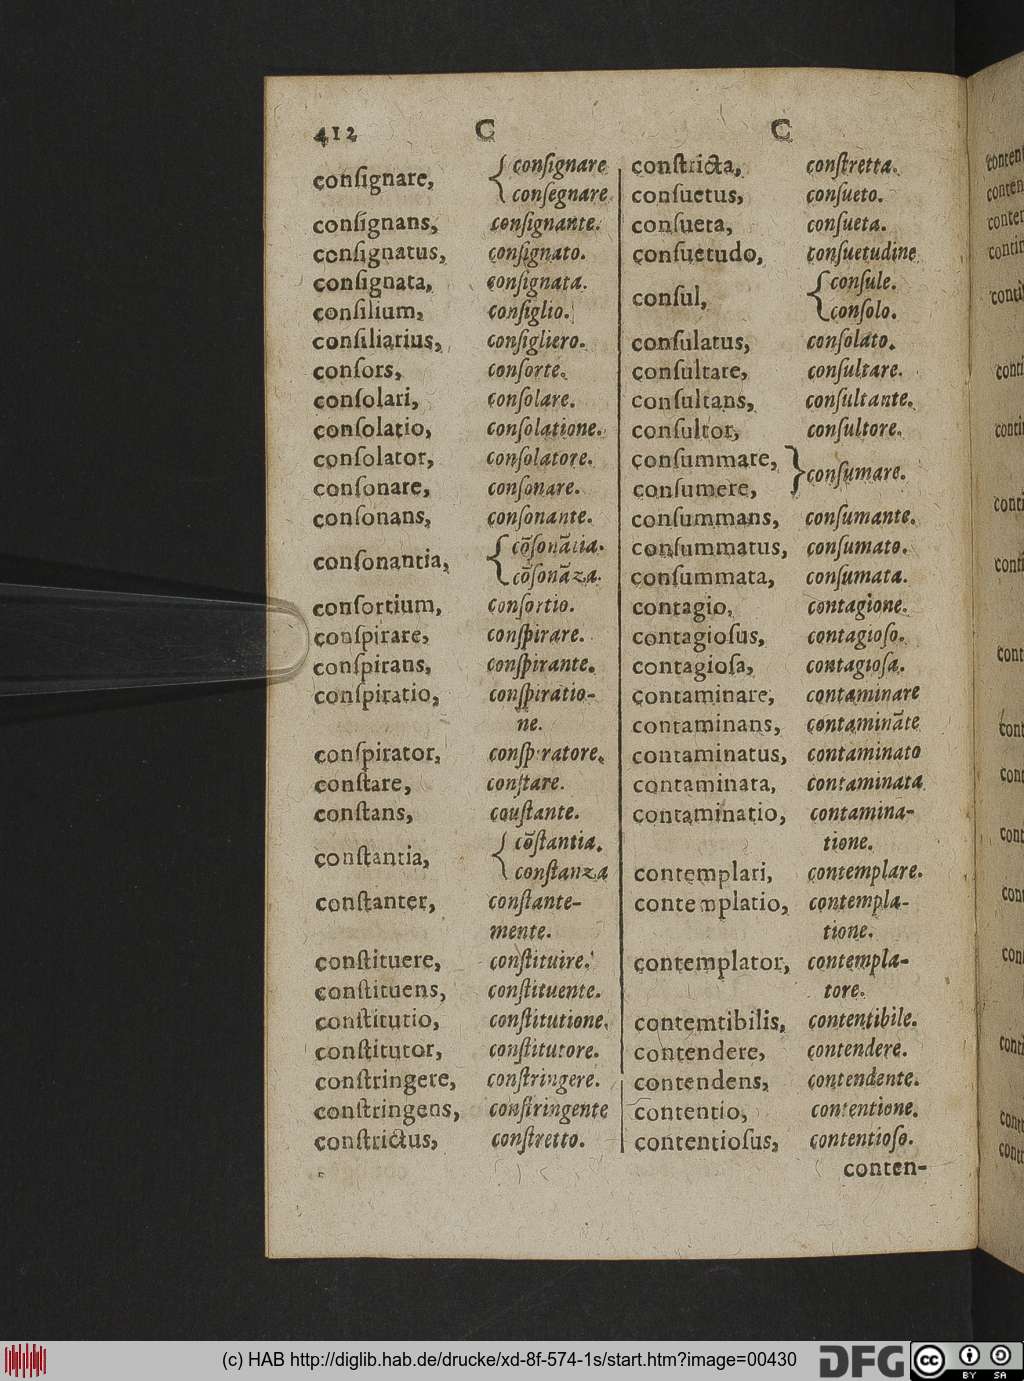 412 C C
conſignare, { conſignare
conſegnare
conſignans, conſignante.
conſignatus, conſignato.
conſignata, conſignata.
conſilium, conſiglio.
conſiliarius, conſigliero.
conſors, conſorte.
conſolari, conſolare.
conſolatio, conſolatione.
conſolator, conſolatore.
conſonare, conſonare.
conſonans, conſonante.
conſonantia, { cõſonãtia.
cõſonãza.
conſortium, conſortio.
conſpirare, conſpirare.
conſpirans, conſpirante.
conſpiratio, conſpiratio-
ne.
conſpirator, conſpiratore.
conſtare, conſtare.
conſtans, couſtante.
conſtantia, { cõſtantia.
conſtanza
conſtanter, conſtante-
mente.
conſtituere, conſtituire.
conſtituens, conſtituente.
conſtitutio, conſtitutione.
conſtitutor, conſtitutore.
conſtringere, conſtringere.
conſtringens, conſtringente
conſtrictus, conſtretto.
conſtricta, conſtretta.
conſuetus, conſueto.
conſueta, conſueta.
conſuetudo, conſuetudine
conſul, { conſule.
conſolo.
conſulatus, conſolato.
conſultare, conſultare.
conſultans, conſultante.
conſultor, conſultore.
conſummare, } conſumare.
conſumere,
conſummans, conſumante.
conſummatus, conſumato.
conſummata, conſumata.
contagio, contagione.
contagioſus, contagioſo.
contagioſa, contagioſa.
contaminare, contaminare
contaminans, contaminãte
contaminatus, contaminato
contaminata, contaminata
contaminatio, contamina-
tione.
contemplari, contemplare.
contemplatio, contempla-
tione.
contemplator, contempla-
tore.
contemtibilis, contentibile.
contendere, contendere.
contendens, contendente.
contentio, contentione.
contentioſus, contentioſo.
conten-
(c) HAB http://diglib.hab.de/drucke/xd-8f-574-1s/start.htm?image=00430
DFG
cc BY SA